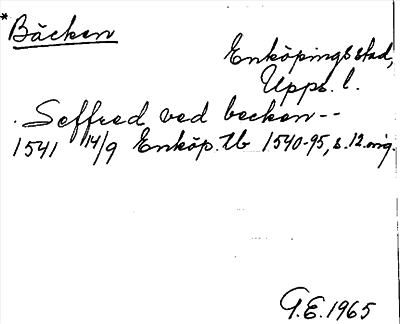 *Bäcken
Enköpings stad,
Upps. l.
. Seffred ved becken--
1541 14/9 Enköp. tb 1540-95, s. 12. orig.
G.E. 1965